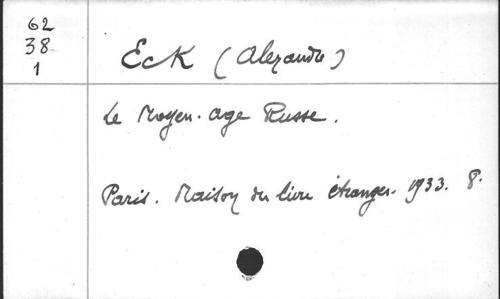 62
38
1
Eck (Alexandre)
Le Moyen-age Russe.
Paris. Maison du livre étranger. 1933. 8.